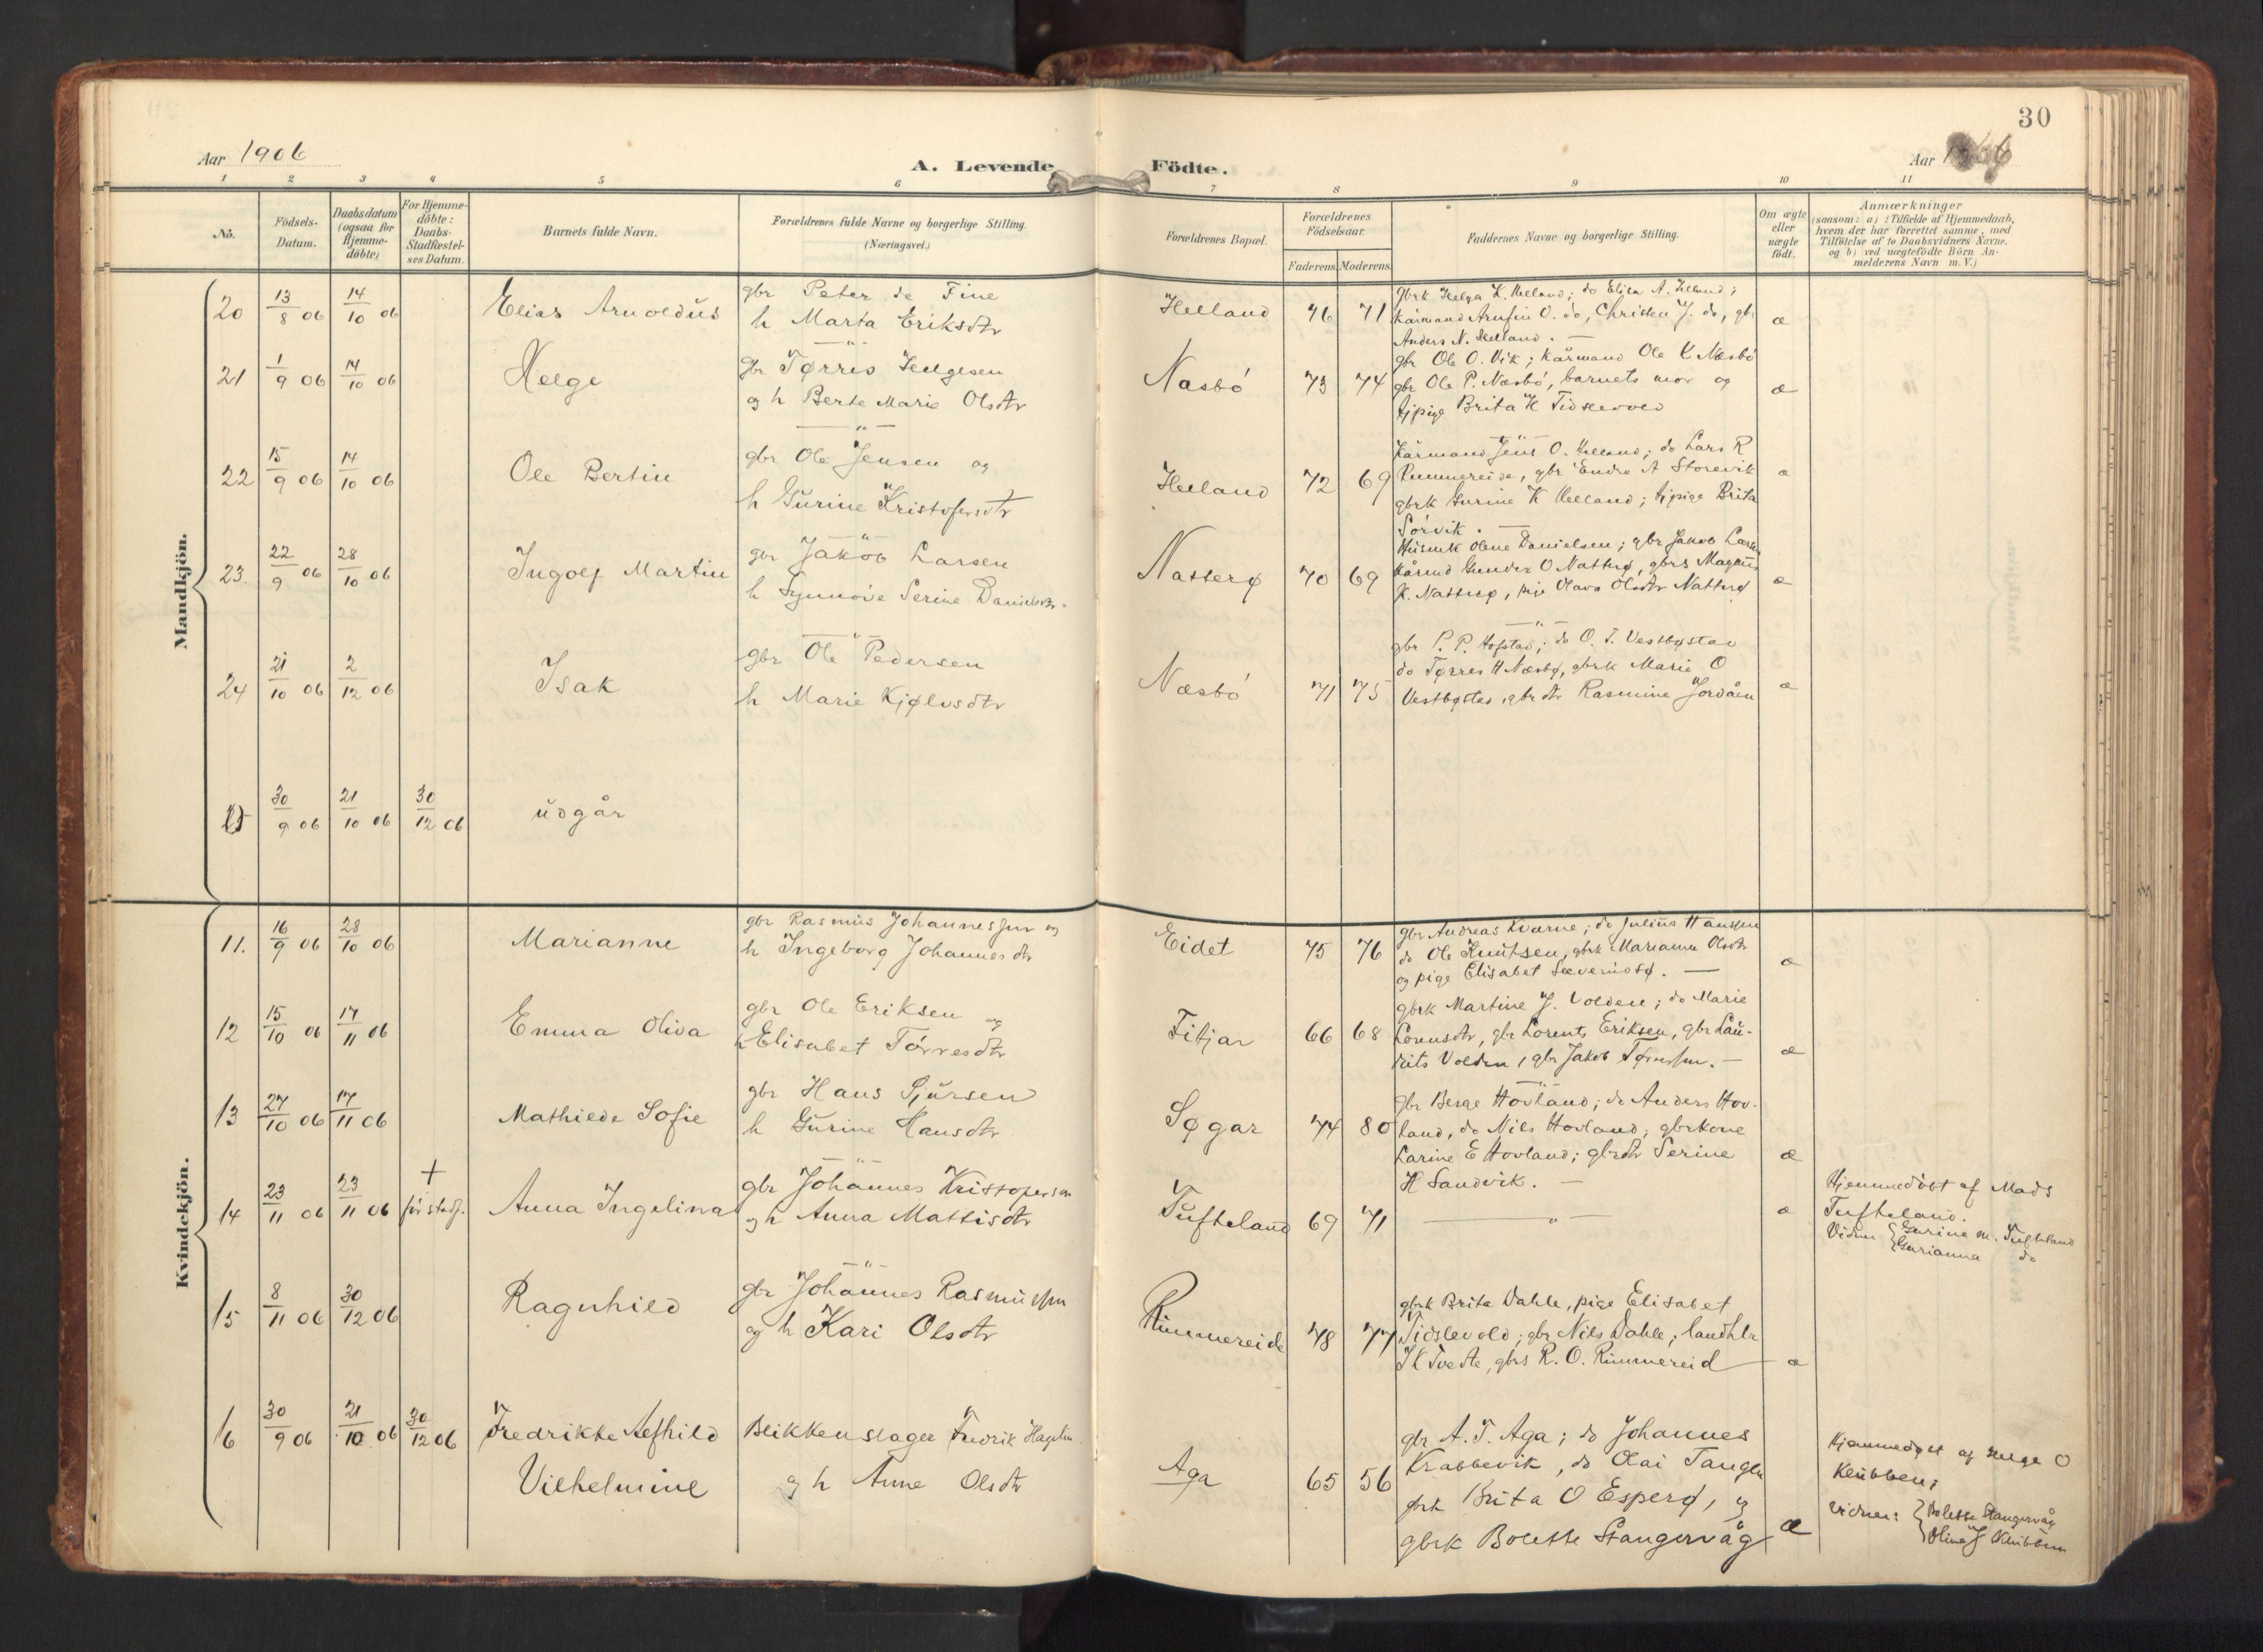 30
Aar 1906
A. Levende Födte.
Aar
1 2 3 4 5 6 7 8 9 10 11
Nö.
Födsels-Datum.
Daabsdatum (ogsaa för Hjemme-döbte)
For Hjemme-döbte: Daabs-Stadfæstel-ses Datum.
Barnets fulde Navn.
Forældrenes fulde Navne og borgerlige Stilling. (Næringsvei.)
Forældrenes Bopæl.
Forældrenes Födselsaar.
Faderens. Moderens.
Faddernes Navne og borgerlige Stilling.
Om ægte eller uægte födt.
Anmærkninger
(saasom: a) i Tilfælde af Hjemmedaab,
hvem der har forrettet samme, med
Tilföielse af to Daabsvidners Navne.
og b) ved uægtefödte Börn An-
melderens Navn m. V.)
Mandkjön.
20 13/8 06 14/10 06 Elias Arnoldus
gbr Peter de Fine
h Marta Eriksdtr
Helland 76 71
gbrk Helga K. Helland; do Elisa A. Helland;
kårmand O. do, Christen J. do, gbr
Anders N. Helland. —
æ
21 1/9 06 14/10 06 Helge
gbr Tørris Helgesen
og h Berte Marie Olsdtr
Næsbö 73 74
gbr Ole O. Vik; kårmand Ole K Næsbö
gbr Ole P. Næsbö, barnets mor og
tjpige Brita K Tidslevold
æ
22 15/9 06 14/10 06 Ole Bertin
gbr Ole Jensen og
h Gurine Kristofersdtr
Helland 72 69
Kårmand Jens O. Helland; do Lars R
Rimmereide, gbr Endre A Storevik
gbrk Gurine K Helland; tjpige Brita
Sörvik. —
æ
23. 22/9 06 28/10 06 Ingolf Martin
gbr Jakob Larsen
h Synnöve Serine Danielsdtr.
Natterø 70 69
Olene Danielsen; gbr Jakob Larsen
kårmd Gunder O Natterø, gbrs Magnus
K. Natterø, pige Olava Olsdtr Natterø
æ
24 21/10 06 2/12 06 Isak
gbr Ole Pedersen
h Marie Kjølvsdtr
Næsbö 71 75
gbr P. P. Hofstad; do O. T. Vestbøstad
do Tørres H Næsbø, gbrk Marie O
Vestbøstad, gbrdtr Rasmine Jordåen
æ
30/9 06 21/10 06 30/12 06 udgår
Kvindekjön.
11. 16/9 06 28/10 06 Marianne
gbr Rasmus Johannessen og
h Ingeborg Johannesdtr
Eidet 75 76
gbr Andreas Kværne; do Julius Hanssen
do Ole Knutsen, gbrk Marianne Olsdtr
og pige Elisabet . —
æ
12 15/10 06 17/11 06 Emma Oliva
gbr Ole Eriksen og
h Elisabet Törresdtr
Fitjar 66 68
gbrk Martine J. Volden; do Marie
Lorensdtr, gbr Lorents Eriksen, gbr Lau-
rits Volden, gbr Jakob Tørressen. —
æ
13 27/10 06 17/11 06 Mathilde Sofie
gbr Hans Sjursen
h Gurine Hansdtr
Søgar 74 80
gbr Berge Hovland; do Anders Hov-
land, do Nils Hovland; gbrkone
Larine E Hovland; gbrdtr Serine
H Sandvik. —
æ
14 23/11 06 23/11 06 + för stadf. Anna Ingelina
gbr Johannes Kristofersen
og h Anna Mattisdtr
Tufteland 69 71
— „ —
æ
Hjemmedöbt af Mads
Tufteland.
Vidner Gurine M. Tufteland
Gurianna do
15 8/11 06 30/12 06 Ragnhild
gbr Johannes Rasmussen
og h Kari Olsdtr
Rimmereide 78 77
gbrk Brita Dahle, pige Elisabet
Tidslevold; gbr Nils Dahle; landhlr
I K Tvedte, gbrs R. O. Rimmereid
æ
16 30/9 06 21/10 06 30/12 06 Fredrikke Alfhild
Vilhelmine
Blikkenslager Fredrik Hagelin
og h Anne Olsdtr
Aga 65 56
gbr A. T. Aga; do Johannes
Krabbevik, do Olai Tangen
gbrk Brita O Esperø, og
gbrk Bolette Stangervåg
æ
Hjemmedøbt af Helge O
Klubben;
Vidner: Bolette Stangervåg
Oline J Klubben